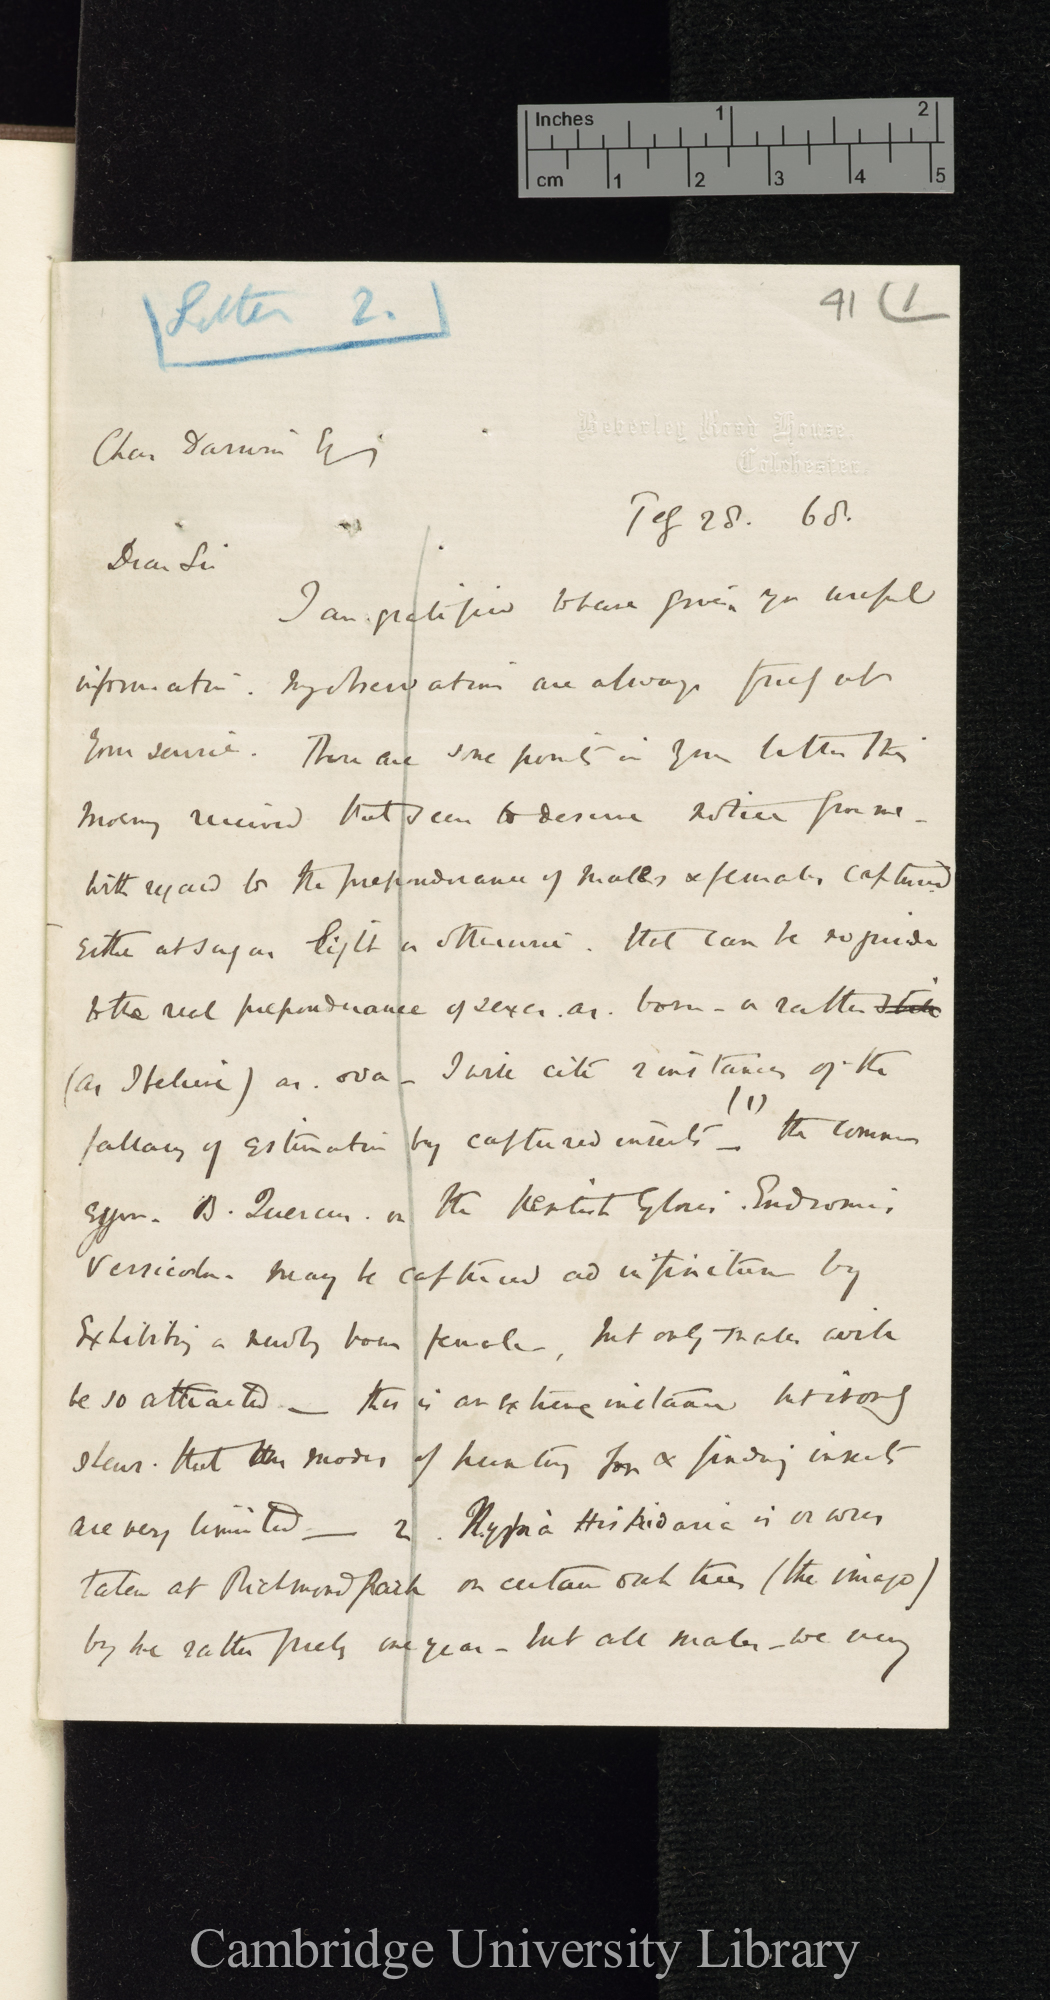 Inches 1 2
cm 1 2 3 4 5
Letter 2.
41 (1
Beverley Road House.
Colchester.
Chas Darwin Esq
Feb 28. 68.
Dear Sir
I am gratified to have given you useful
information. My observations are always freely at
your service. There are some points in your letter this
morning received that seem to deserve notice from me –
With regard to the preponderance of males & females captured
either at sugar light or otherwise. that can be no guide
to the real preponderance of sexes. as. born – or rather
(as I believe) as. ova – I will cite 2 instances of the
fallacy of estimation by captured insects – (1) the common
eggar. B. Quercus. or the Kentish Glory. Endromis
Versicolor. may be captured ad infinitum by
Exhibiting a newly born female, but only males will
be so attracted – this is an extreme instance but it only
shews. that the modes of hunting for & finding insects
are very limited — 2. Nyssia Hispidaria is or was
taken at Richmond Park on certain oak trees (the imago)
by me rather freely one year – but all males – we very
Cambridge University Library